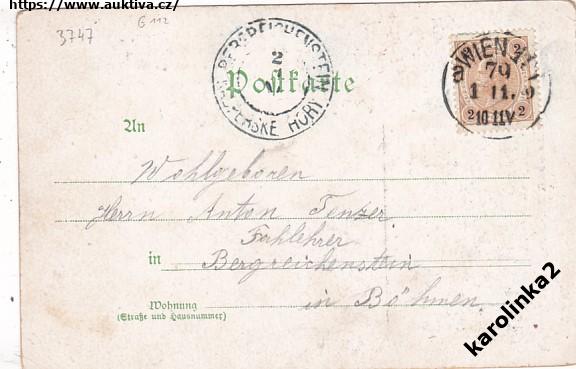 https://www.auktiva.cz/
3747
G 112
BERGREICHENSTEIN
2
VI
HORY
Postkarte
WIEN
79
1 11. 9
10 11V
2
2 2
An
Wohlgeboren
Herrn Anton Tenzer
Fachlehrer
in Bergreichenstein
in Böhmen
Wohnung
(Straße und Hausnummer)
karolinka2